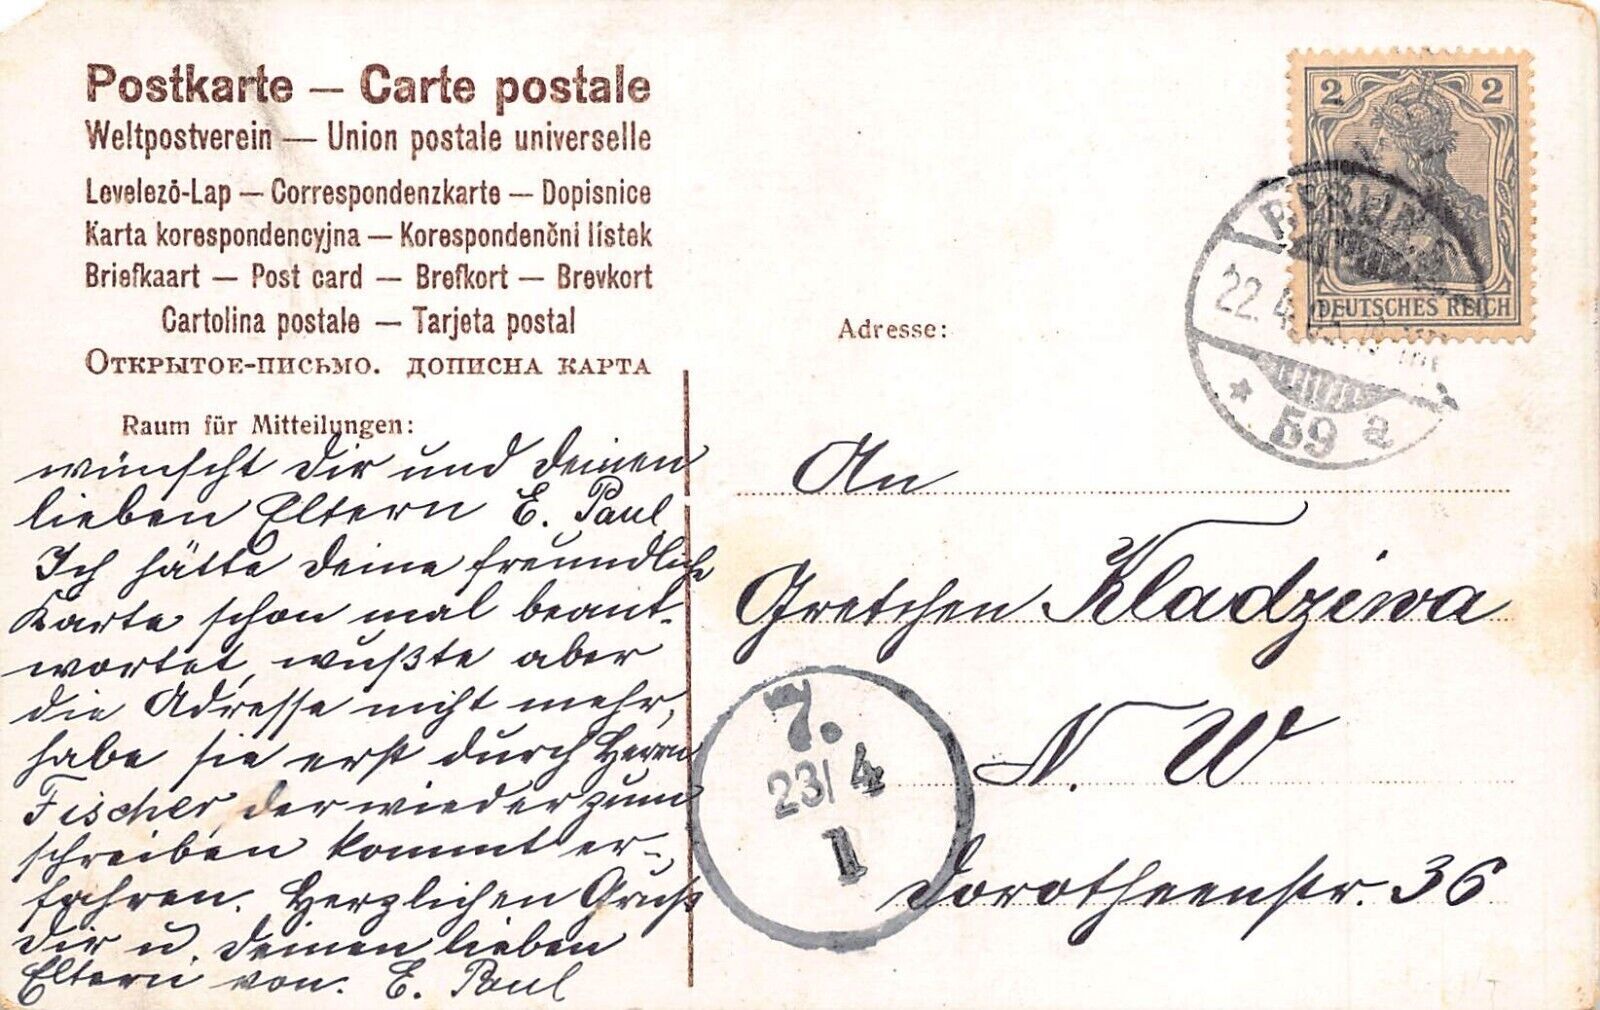 Postkarte — Carte postale
Weltpostverein — Union postale universelle
Levelezö-Lap — Correspondenzkarte — Dopisnice
Karta korespondencyjna — Korespondenčni lístek
Briefkaart — Post card — Brefkort — Brevkort
Cartolina postale — Tarjeta postal
Открытое-письмо. дописна карта
Raum für Mitteilungen:
wünscht Dir und deinen
lieben Eltern E. Paul
Ich hätte deine freundliche
Karte schon mal beant-
wortet, wußte aber
die Adresse nicht mehr,
habe sie erst durch Herrn
Fischer, der wieder zum
schreiben kommt er-
fahren. Herzlichen Gruß
dir u. deinen lieben
Eltern von. E. Paul
2 2
DEUTSCHES REICH
BERLIN
22. 4.
* 59 a
Adresse:
An
Gretchen Kladziwa
N. W
Dorotheenstr. 36
7.
23/4
1